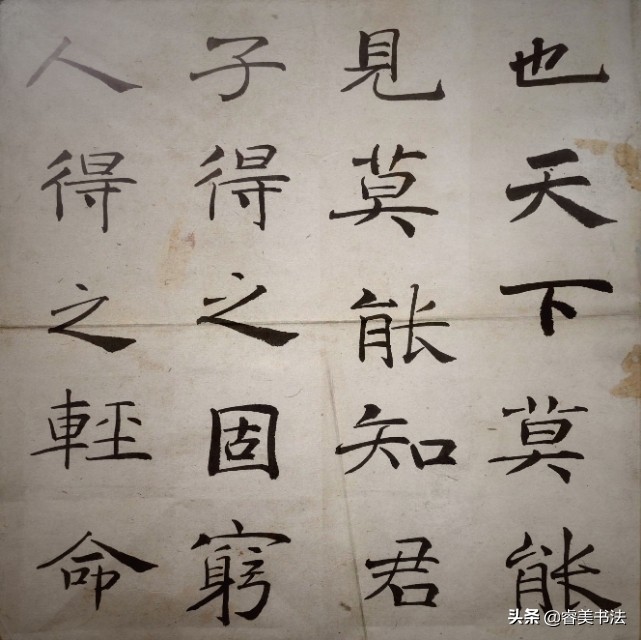 也天下莫能
見莫能知君
子得之固窮
人得之輕命
头条 @睿美书法